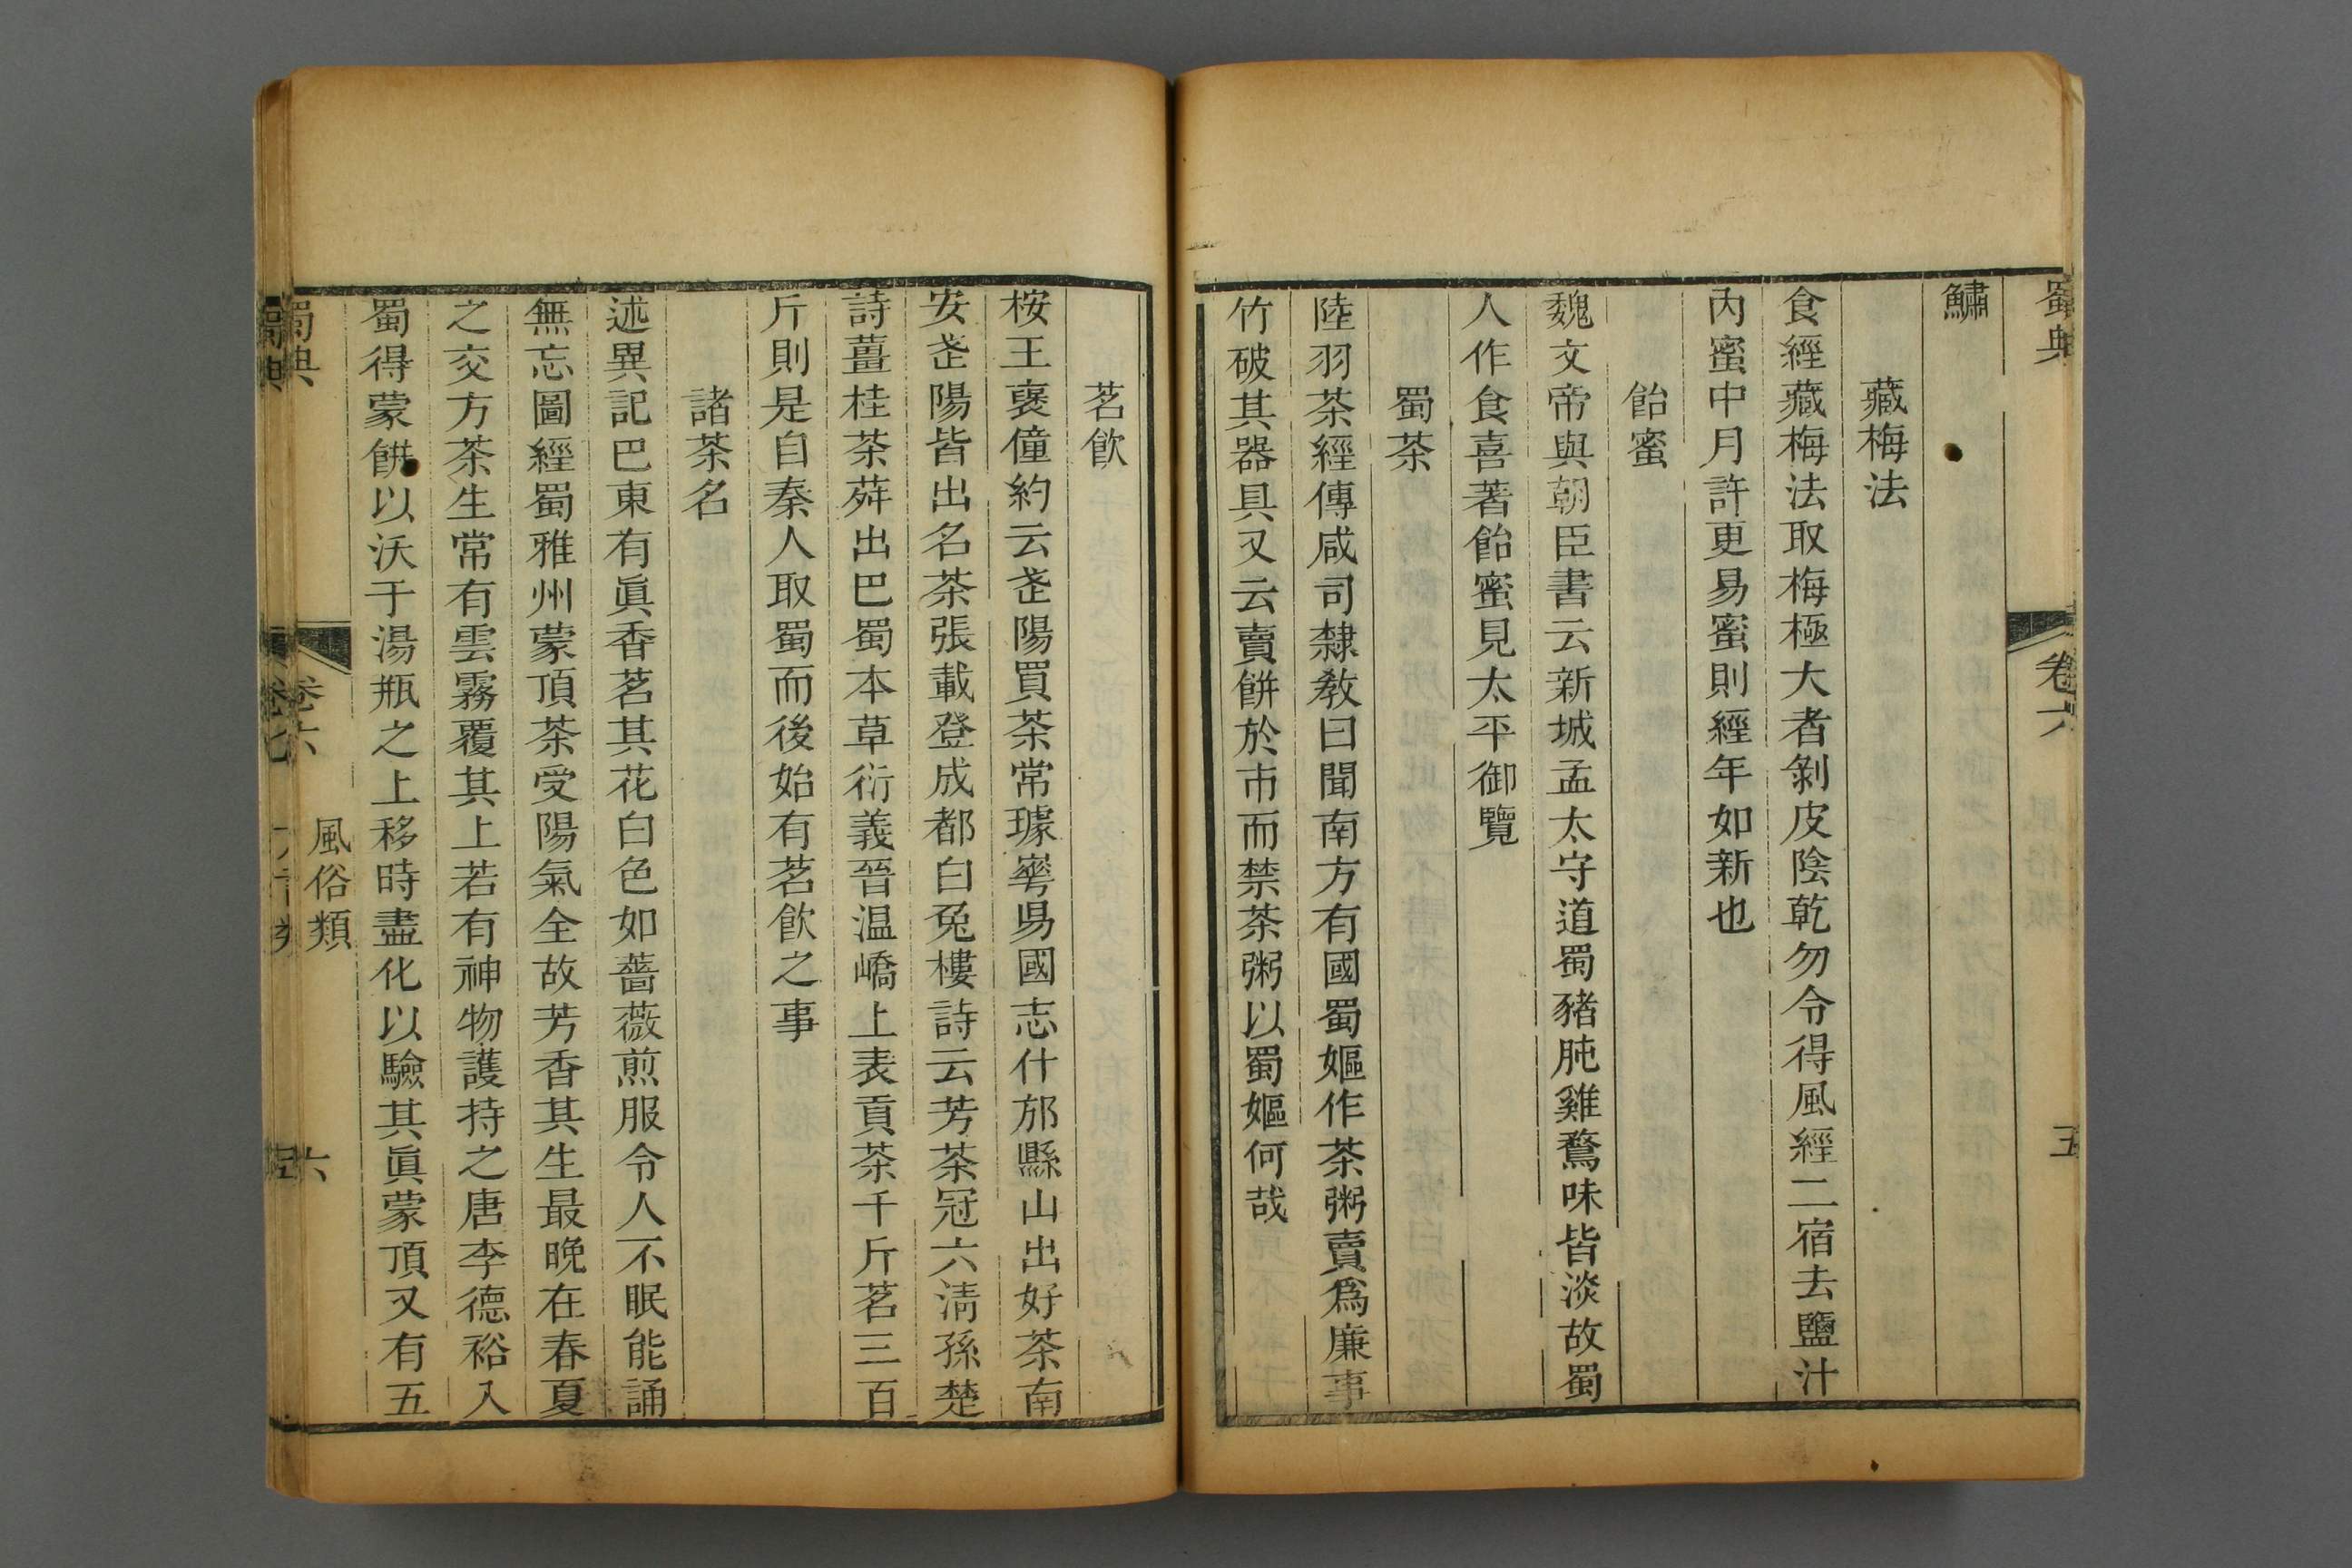 蜀典
卷六
五
鱐
藏梅法
食經藏梅法取梅極大者剝皮陰乾勿令得風經二宿去鹽汁
內蜜中月許更易蜜則經年如新也
飴蜜
魏文帝與朝臣書云新城孟太守道蜀豬肫雞鶩味皆淡故蜀
人作食喜著飴蜜見太平御覽
蜀茶
陸羽茶經傳咸司隸敎曰聞南方有國蜀嫗作茶粥賣爲廉事
竹破其器具又云賣餅於市而禁茶粥以蜀嫗何哉
茗飲
桉王襃僮約云武陽買茶常璩華昜國志什邡縣山出好茶南
安武陽皆出名茶張載登成都白兔樓詩云芳茶冠六淸孫楚
詩薑桂茶荈出巴蜀本草衍義晉温嶠上表貢茶千斤茗三百
斤則是自秦人取蜀而後始有茗飲之事
諸茶名
述異記巴東有眞香茗其花白色如薔薇煎服令人不眠能誦
無忘圖經蜀雅州蒙頂茶受陽氣全故芳香其生最晚在春夏
之交方茶生常有雲霧覆其上若有神物護持之唐李德裕入
蜀得蒙餅以沃于湯瓶之上移時盡化以驗其眞蒙頂又有五
蜀典
卷六
風俗類
六
蜀典
卷七